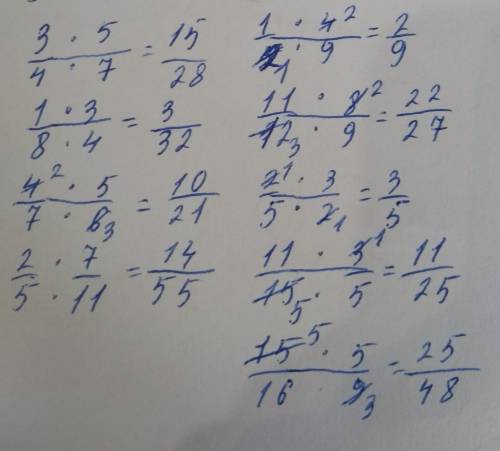 3 · 5 / 4 · 7 = 15 / 28
1 · 3 / 8 · 4 = 3 / 32
4² · 5 / 7 · 6₃ = 10 / 21
2 / 5 · 7 / 11 = 14 / 55
1 · 4² / 2₁ · 9 = 2 / 9
11 · 8² / 12₃ · 9 = 22 / 27
2¹ · 3 / 5 · 2₁ = 3 / 5
11 · 3¹ / 15₅ · 5 = 11 / 25
15⁵ · 5 / 16 · 9₃ = 25 / 48